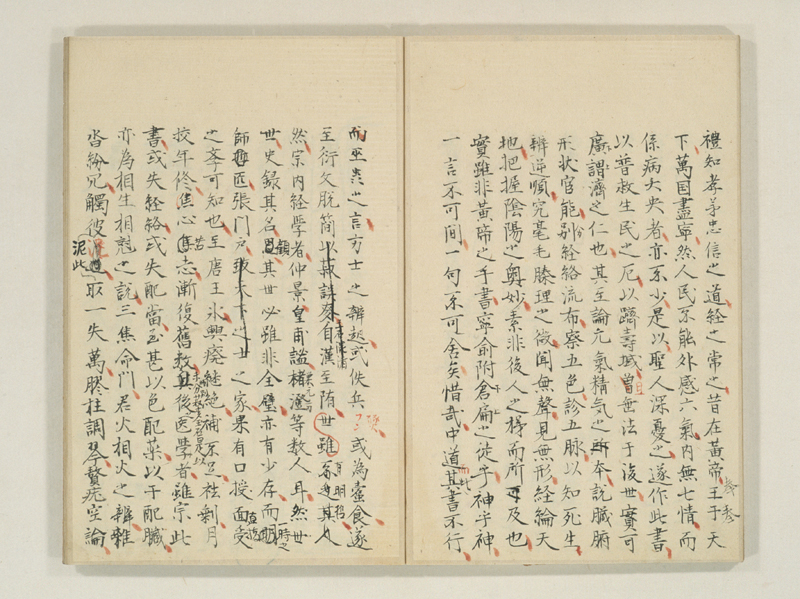 禮知孝弟忠信之道經之常也昔在黃帝王于天
下萬国盡寧然人民不能外感六氣內無七情而
係病大夭者亦不少是以聖人深憂之遂作此書
以普救生民之厄以躋壽域曾垂法于後世實可
廣謂濟之仁也其至論元氣精氣之本說臟腑
形状官能別分經絡流布察五色診五脉以知死生
辨逆順究毫毛腠理之微聞無聲見無形経綸天
地把握陰陽之奧妙素非後人之梼而所可及也
實雖非黃帝之手書寧俞附倉扁之徒乎神乎神
一言不可間一句不可舍矣惜哉中道其書不行
而巫之言方士之辨起或佚兵或為蠹食遂
至衍欠脱簡自漢至隋世雖其人
然宗内経學者仲景皇甫謐褚澄等数人耳然世
世史錄其名其世必雖非全璧亦有少存而
師匠張門戸之家果有口授面受
之李可知也至唐王氷興廢継絶補不足祛剰月
挍年修焦心苦志漸復舊教其後医學者雖宗此
書或失経絡或失配當甚以色配薬以干配臓
亦為相生相尅之説三焦命門君火相火之辨雜
沓紛冗觸彼泥此取一失萬膠柱調琴贅疣空論